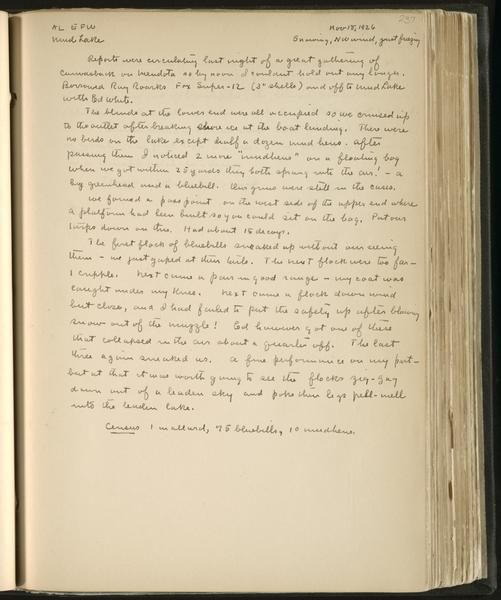 237
AL EFW Nov 18, 1926
Mud Lake Snowing, NW wind, just freezing
Reports were circulating last night of a great gathering of
canvasback on Mendota so by noon I couldnt hold out any longer.
Borrowed Ray Roarks Fox Super-12 (3" shells) and off to Mud Lake
with Ed White.
The blinds at the lower end were all occupied so we cruised up
to the outlet after breaking shore ice at the boat landing. There were
no birds on the lake except half a dozen mud hens. After
passing them I noticed 2 more "mudhens" on a floating bog
when we got within 25 yards they both sprang into the air! - a
big greenhead and a bluebill. Our guns were still in the cases.
We found a pass point on the west side of the upper end where
a platform had been built so you could set on the bog. Put our
traps down on this. Had about 15 decoys.
The first flock of bluebills sneaked up without our seeing
them - we just gaped at their tails. The next flock were too far -
1 cripple. Next came a pair in good range - my coat was
caught under my knee. Next came a flock down wind
but close, and I had failed to put the safety up after blowing
snow out of the muzzle! Ed however got one of these
that collapsed in the air about a quarter off. The last
three again sneaked us. A fine performance on my part -
but at that it was worth going to see the flocks zig-zag
down out of a leaden sky and poke their legs pell-mell
into the leaden lake.
Census 1 mallard, 75 bluebills, 10 mudhens.